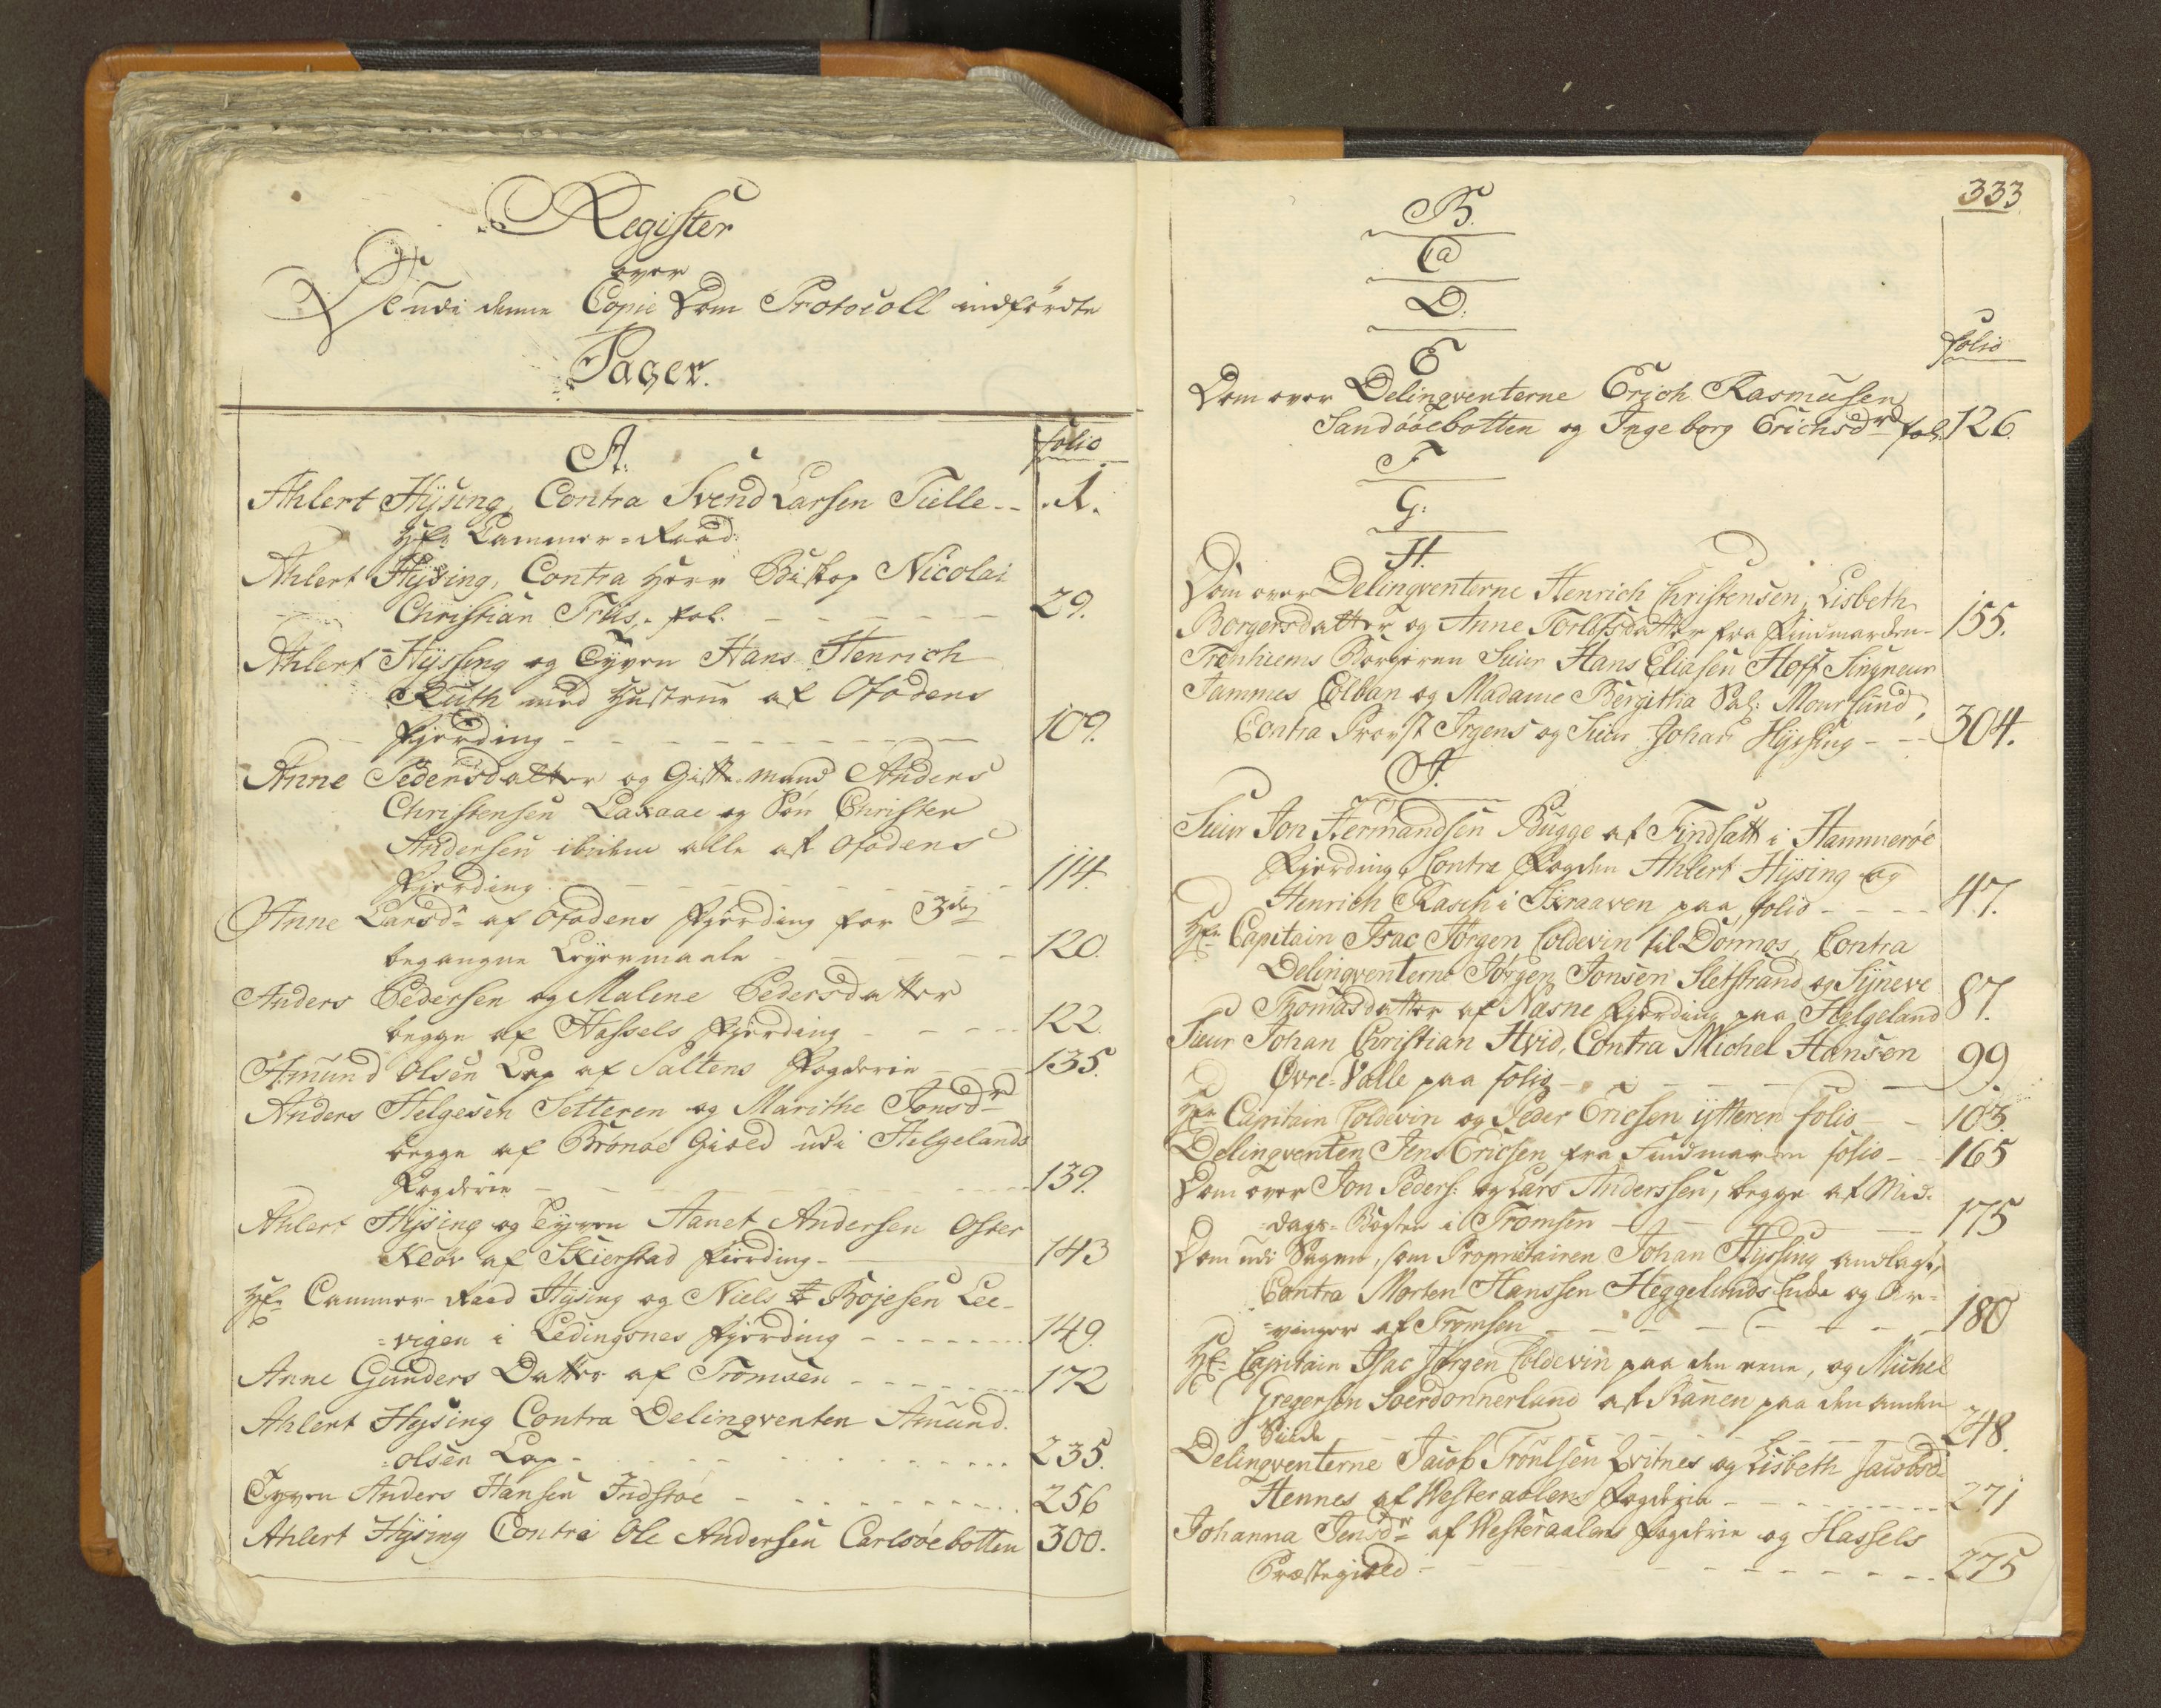 Register
over
De udi denne Copie Dom Protocoll indførdte
Sager.
A.
folio
Ahlert Hÿsing, Contra Svend Larsen Tielle -- 1.
Hr: Cammer=Raad:
Ahlert Hÿsing, Contra Herr Biskop Nicolai
Christian Friis,- fol. - - - - - - 29.
Ahlert Hÿssing og Tyven Hans Henrich
Ruth med Hustrue af Ofodens
Fjerding - - - - - - - - - 109.
Anne Pedersdatter og Gifte-mand Anders
Christensen Laxaae og Søn Christen
Andersen ibidem alle af Ofodens
Fjerding - - - - - - - - - 114.
Anne Larsdr af Ofodens Fjerding for 3de
begangne Leÿermaale - - - - - 120.
Anders Pedersen og Malene Pedersdatter
begge af Hassels Fjerding - - - - 122.
Amund Olsen Lap af Saltens Fogderie - - - 135.
Anders Helgesen Setteren og Marithe Jonsdr
begge af Brønøe Gield udi Helgelands
Fogderie - - - - - - 139.
Ahlert Hÿsing og Tyven Anders Andersen Oster
Kløv af Skierstad Fierding - 143
Hr Cammer-Raad Hÿsing og Niels Bojesen Lee-
=vigen i Ledingsnes Fjerding - - - - - - 149.
Anne Gunders Datter af Tromsen - - - - - 172
Ahlert Hÿsing Contra Delinqventen Amund
=olsen Lap - - - - - - - 235.
Tyven Anders Hansen Indstøe - - - - - 256
Ahlert Hÿsing Contra Ole Andersen Carlsøebotten 300.
333
B.
Ca
D.
E
folio
Dom over Delinqventerne Erich Rasmusen
Sandøøebotten og Ingeborg Erichsdr fol: 126.
F
G.
H.
Dom over Delinqventerne Henrich Christensen, Lisbeth
Borgersdatter og Anne Torlefsdatter fra Findmarcken - 155.
Tronhiems Borgeren Sieur Hans Eliasen Hoff Singneur
Jammes Colban og Madame Bergitha Sal: Moursund,
Contra Provst Irgens og Sieur Johan Hÿssing - - 304.
J.
Sieur Jon Hermandsen Bugge af Findsætt i Hammerøe
Fjerding, Contra Fogden Ahlert Hÿsing og
Henrich Rasch i Skraaven paa folio - - - 47.
Hr Capitain Isac Jørgen Coldevin til Dønnæs, Contra
Delinqventerne Jørgen Jonsen Sletstrand og Sÿneve
Thomasdatter af Næsne Fjerding paa Helgeland 87.
Sieur Johan Christian Hvid, Contra Michel Hansen
Øvre=Valle paa folio - - - - 99.
Hr Capitain Coldevin og Peder Ericsen ÿtteren folio - - 103.
Delinqventen Jens Ericsen fra Findmarcken folio - - 165
Dom over Jon Peders: og Lars Anderssen, begge af Mid-
=dags=Bøgden i Tromsen - - - 175
Dom udi Sagen, som Proprietairen Johan Hÿssing anlagt,
Contra Morten Hanssen Heggelunds Enke og Ar=
=vinger af Tromsen - - - - - - - 180
Hr: Capitain Isac Jørgen Coldevin paa den eene, og Michel
Gregersen Soerdonnerland af Ranen paa den anden
Siide - - - - - - 248.
Delinqventerne Jacob Trøulsen Qvitnes og Lisbeth Jacobsd:
Hennes af Westeraalens Fogderie - - - - - 271
Johanna Jensdr af Westeraalens Fogderie og Hassels
Præstegield - - - - - - - 275